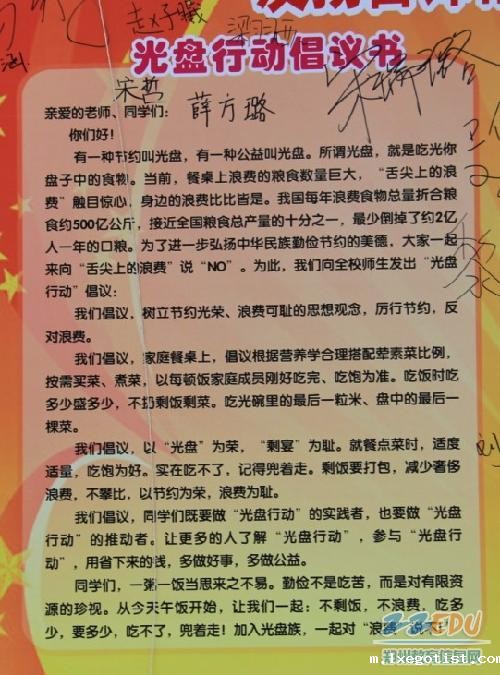 赵子曦
宋哲
薛方璐
光盘行动倡议书
亲爱的老师、同学们：
你们好！
有一种节约叫光盘，有一种公益叫光盘。所谓光盘，就是吃光你
盘子中的食物。当前，餐桌上浪费的粮食数量巨大，“舌尖上的浪
费”触目惊心，身边的浪费比比皆是。我国每年浪费食物总量折合粮
食约500亿公斤，接近全国粮食总产量的十分之一，最少倒掉了约2亿
人一年的口粮。为了进一步弘扬中华民族勤俭节约的美德，大家一起
来向“舌尖上的浪费”说“NO”。为此，我们向全校师生发出“光盘
行动”倡议：
我们倡议，树立节约光荣、浪费可耻的思想观念，厉行节约，反
对浪费。
我们倡议，家庭餐桌上，倡议根据营养学合理搭配荤素菜比例，
按需买菜、煮菜，以每顿饭家庭成员刚好吃完、吃饱为准。吃饭时吃
多少盛多少，不扔剩饭剩菜。吃光碗里的最后一粒米、盘中的最后一
棵菜。
我们倡议，以“光盘”为荣，“剩宴”为耻。就餐点菜时，适度
适量，吃饱为好。实在吃不了，记得兜着走。剩饭要打包，减少奢侈
浪费，不攀比，以节约为荣，浪费为耻。
我们倡议，同学们既要做“光盘行动”的实践者，也要做“光盘
行动”的推动者。让更多的人了解“光盘行动”，参与“光盘行
动”，用省下来的钱，多做好事，多做公益。
同学们，一粥一饭当思来之不易。勤俭不是吃苦，而是对有限资
源的珍视。从今天午饭开始，让我们一起：不剩饭，不浪费，吃多
少，要多少，吃不了，兜着走！加入光盘族，一起对“浪费”说不！
ZZEDU
郑州教育信息网
m.1xegotist.com